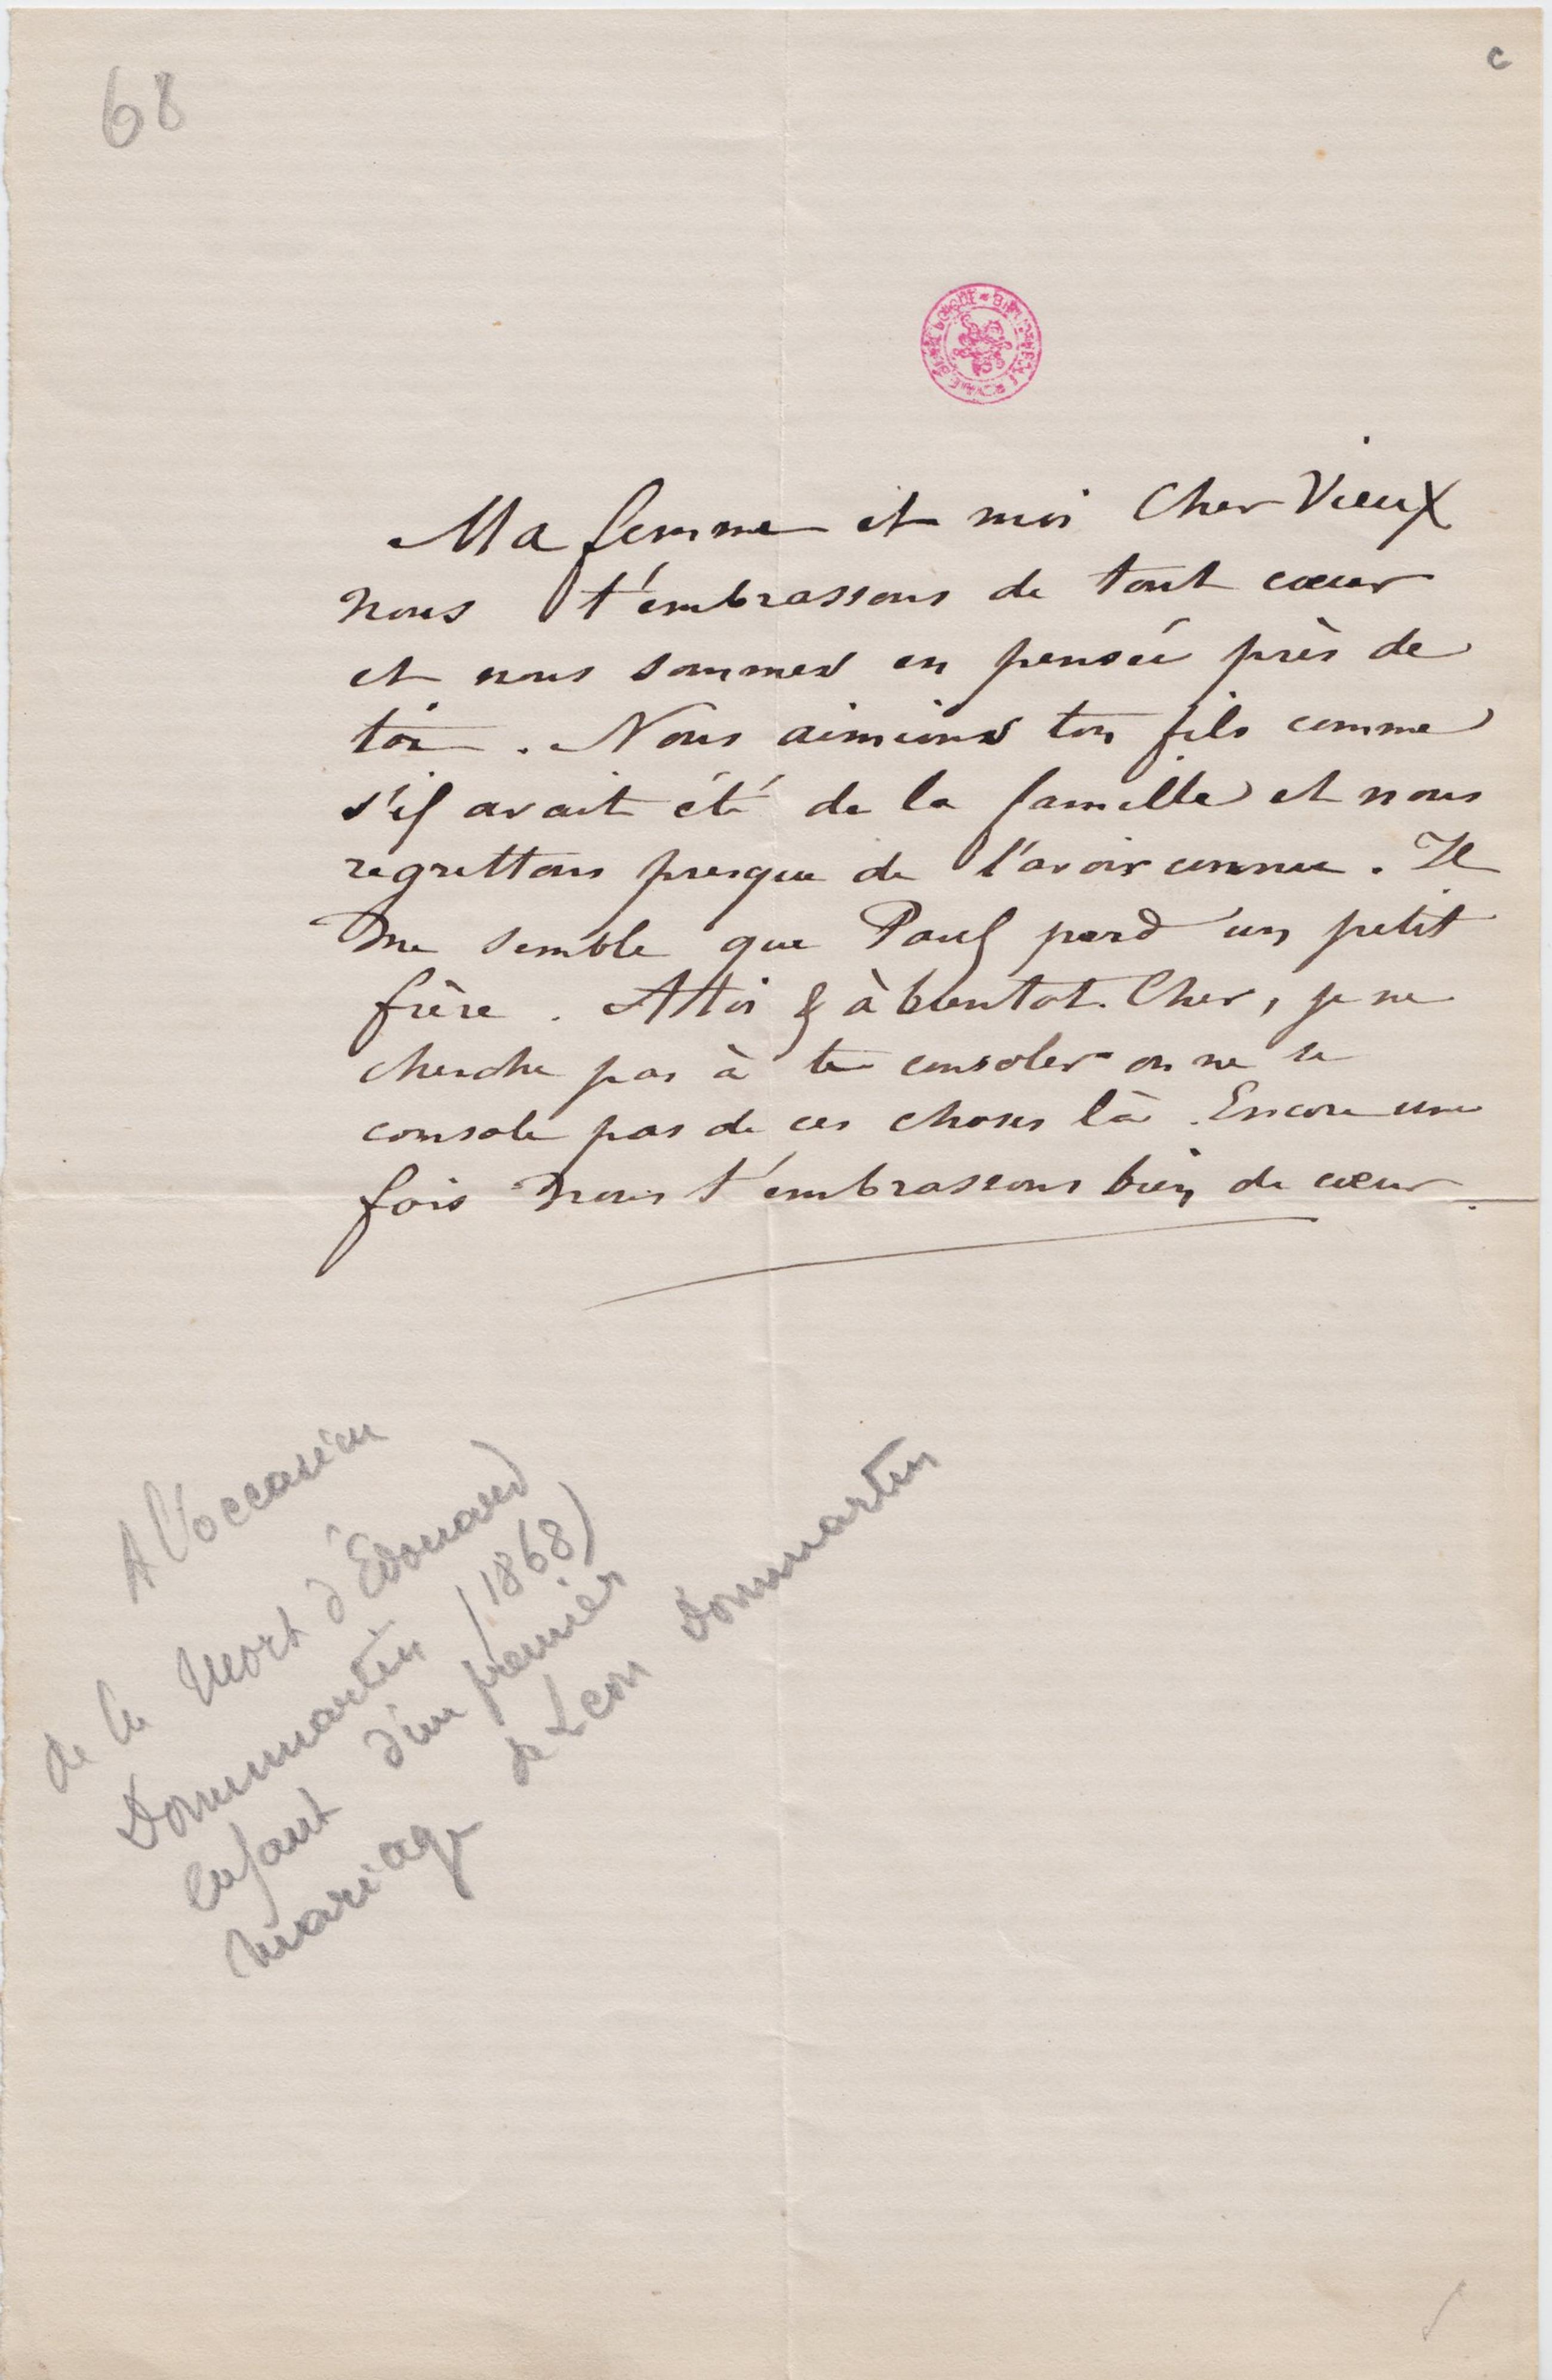 68
c
Ma femme et moi Cher Vieux
nous t'embrassons de tout cœur
et nous sommes en pensée près de
toi. Nous aimions ton fils comme
s'il avait été de la famille et nous
regrettons presque de l'avoir connu. Il
me semble que Paul perd un petit
frère. A toi & à bientot. Cher, je ne
cherche pas à te consoler on ne se
console pas de ces choses là. Encore une
fois nous t'embrassons bien de cœur.
A l'occasion
de la mort d'Édouard
Dommartin (1868)
enfant d'un premier
mariage de Léon Dommartin